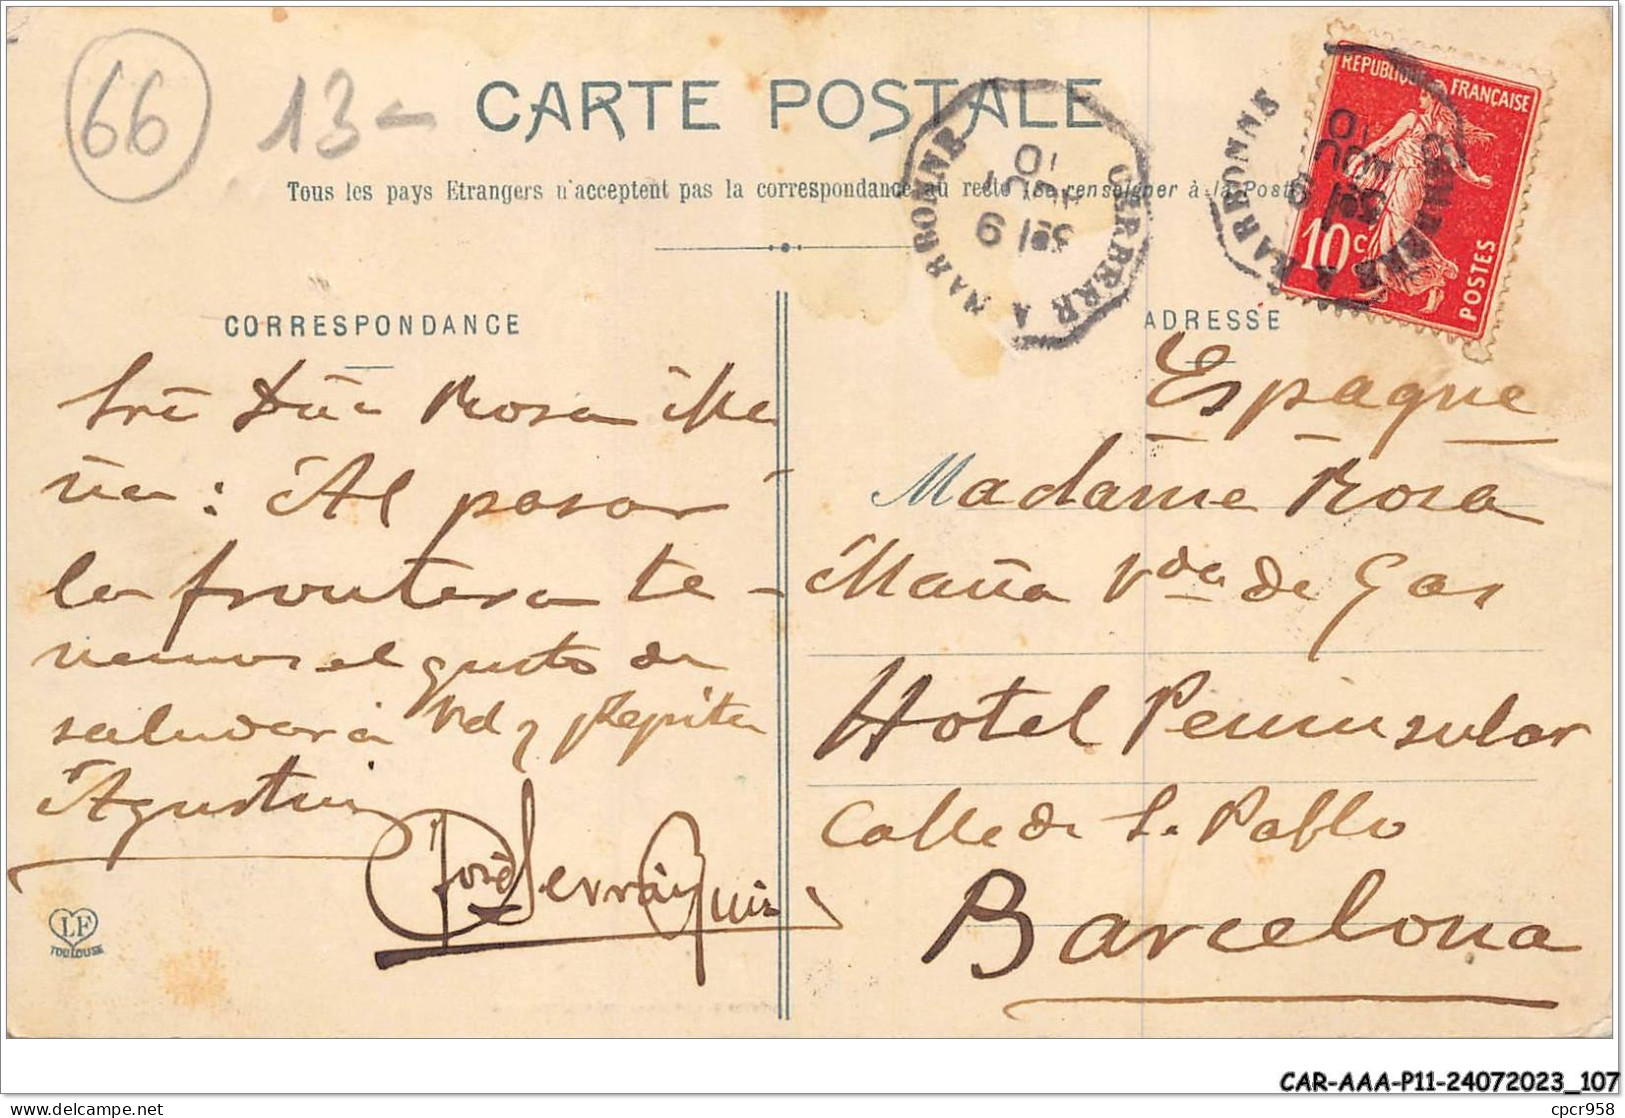 66
13-
CARTE POSTALE
Tous les pays Etrangers n'acceptent pas la correspondance au recto (Se renseigner à la Poste)
CERBERE A NARBONNE
10
AOUT
CERBERE A NARBONNE
10
AOUT
REPUBLIQUE FRANÇAISE
10c
POSTES
CORRESPONDANCE
Dña Rosa Ma
ña: Al pasar
la frontera te-
nemos el gusto de
saludar á Vd y Pepita
Agustin
José Serra
LF
TOULOUSE
ADRESSE
Espagne
Madame Rosa
Maña Vda de Gas
Hotel Peninsular
Calle de Sn Pablo
Barcelona
CAR-AAA-P11-24072023_107
cpcr958